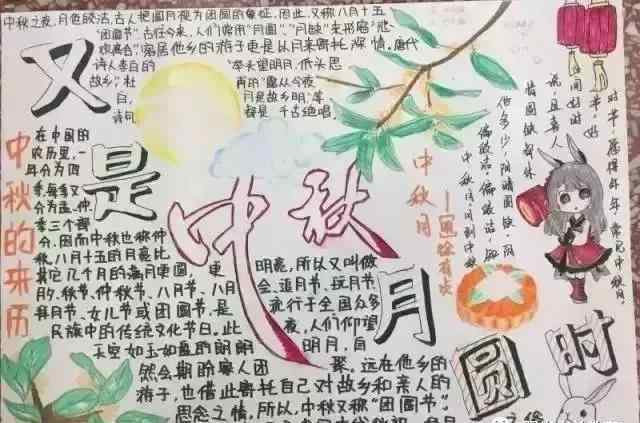 中秋之夜,月色皎洁,古人把圆月视为团圆的象征,因此,又称八月十五
"团圆节"。古往今来,人们常用"月圆"、"月缺"来形容"悲
欢离合",客居他乡的游子更是以月来寄托深情。唐代
诗人李白的
"举头望明月,低头思
故乡",杜
甫的"露从今夜
白,
月是故乡明"等
诗句
都是
千古绝唱
又
是
中秋
月
圆
时
中秋的来历
在中国的
农历里,一
年分为四
季,每季又
分为孟、仲、
季三个部
分,因而中秋也称仲
秋。八月十五的月亮比
其它几个月的满月更圆,更
明亮,所以又叫做
月夕、秋节、仲秋节、八月节、八月
会、追月节、玩月节、
拜月节、女儿节或团圆节,是
流行于全国众多
民族中的传统文化节日。此
夜,人们仰望
天空如玉如盘的朗朗
明月,自
然会期盼家人团
聚。远在他乡的
游子,也借此寄托自己对故乡和亲人的
思念之情,所以,中秋又称"团圆节"。
中秋月
中秋月。月到中秋
偏皎洁。偏皎洁,知
他多少,阴晴圆缺。阴
晴圆缺都休
说,且喜人
间好时
节。好
时节,愿得年年,常见中秋月。